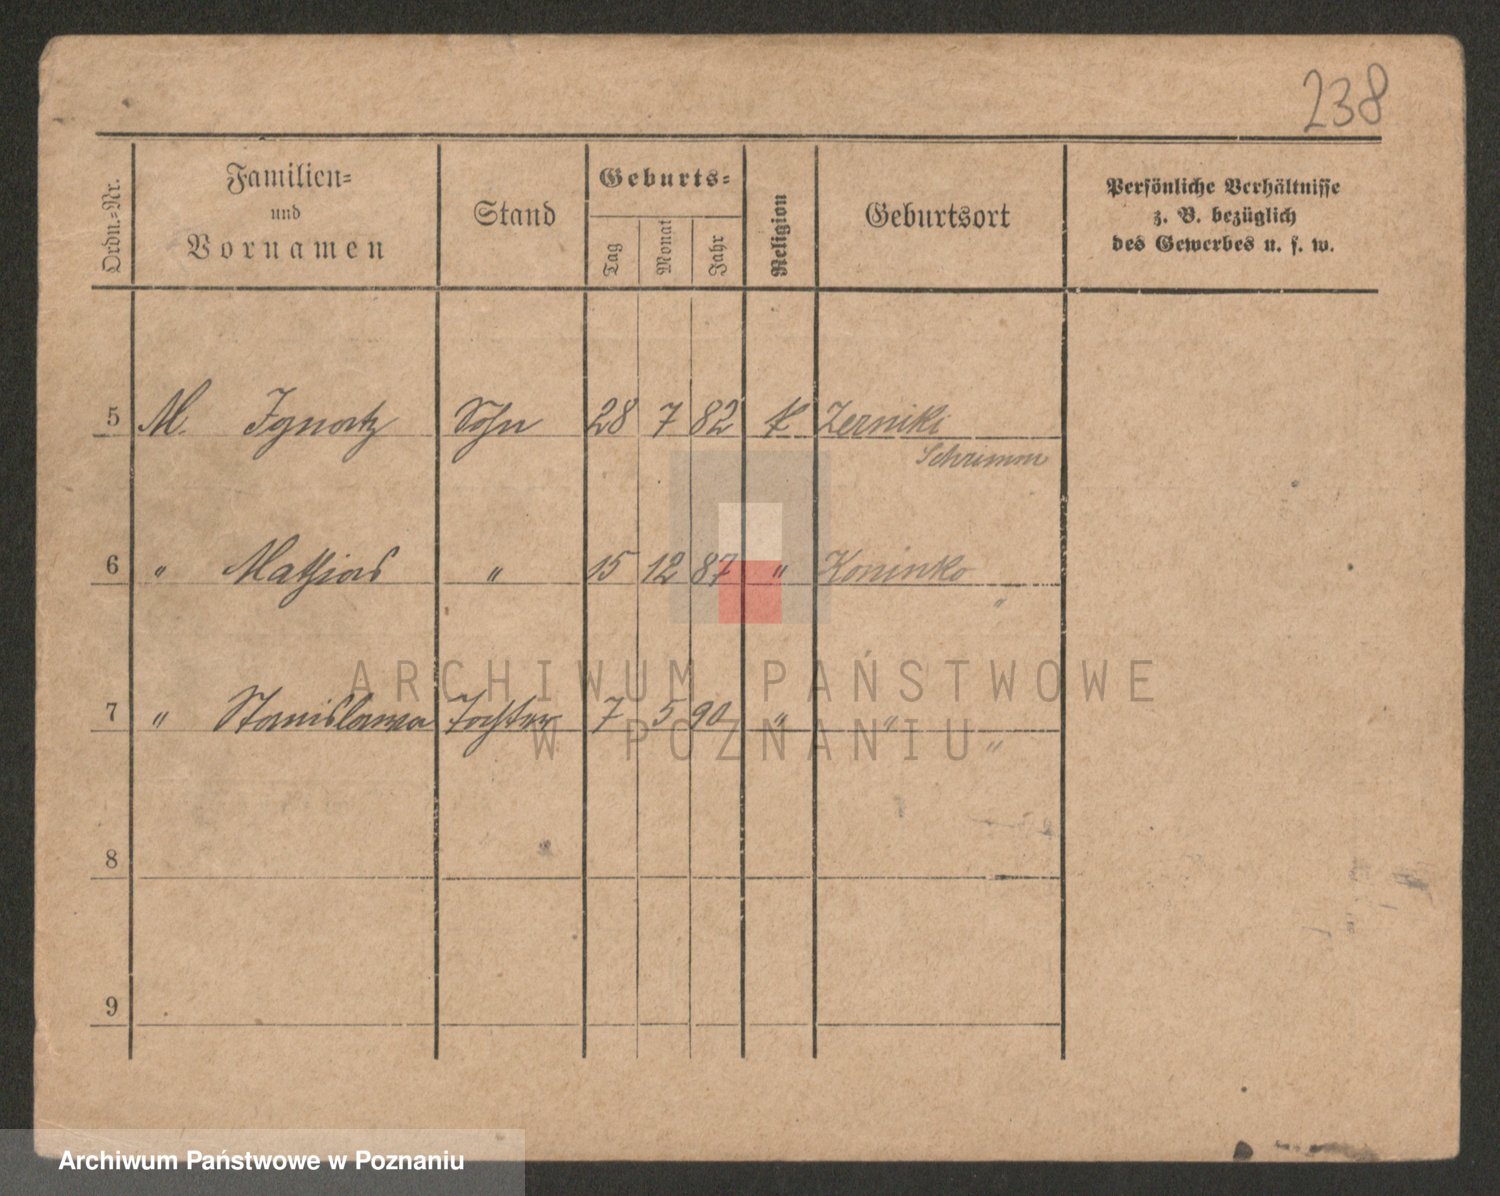 238
Ordn.=Nr.
Familien=
und
Vornamen
Stand
Geburts=
Tag
Monat
Jahr
Religion
Geburtsort
Persönliche Verhältnisse
z. B. bezüglich
des Gewerbes u. s. w.
5 M. Ignatz Sohn 28 7 82 k Zerniki
Schrimm
6 " Mathias " 15 12 87 " Koninko
"
7 " Stanislawa Tochter 7 5 90 " "
"
8
9
ARCHIWUM PAŃSTWOWE
W POZNANIU
Archiwum Państwowe w Poznaniu